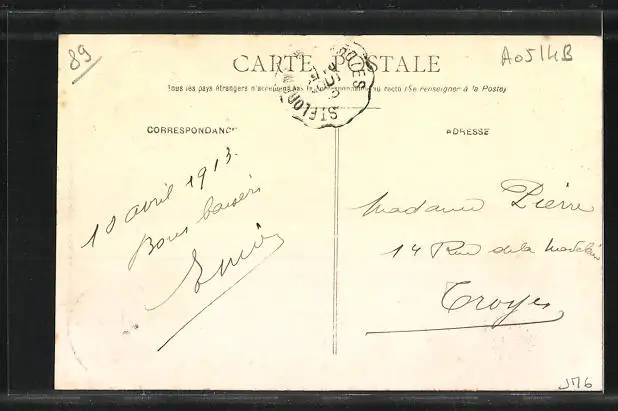 89
CARTE POSTALE
A0514B
Tous les pays étrangers n'acceptent pas la correspondance au recto (Se renseigner à la Poste)
ST FLOR
CORRESPONDANCE
ADRESSE
10 avril 1913.
Bons baisers
Madame Pierre
14 Rue de la Madeleine
Troyes
JM6